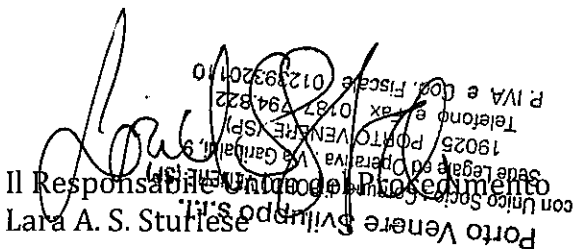 Il Responsabile Unico del Procedimento
Lara A. S. Sturlese
Porto Venere Sviluppo s.r.l.
con Unico Socio Comune
Sede Legale ed Operativa Via Garibaldi, 9
19025 PORTO VENERE (SP)
Telefono e Fax 0187 794.822
P. IVA e Cod. Fiscale 01239320110